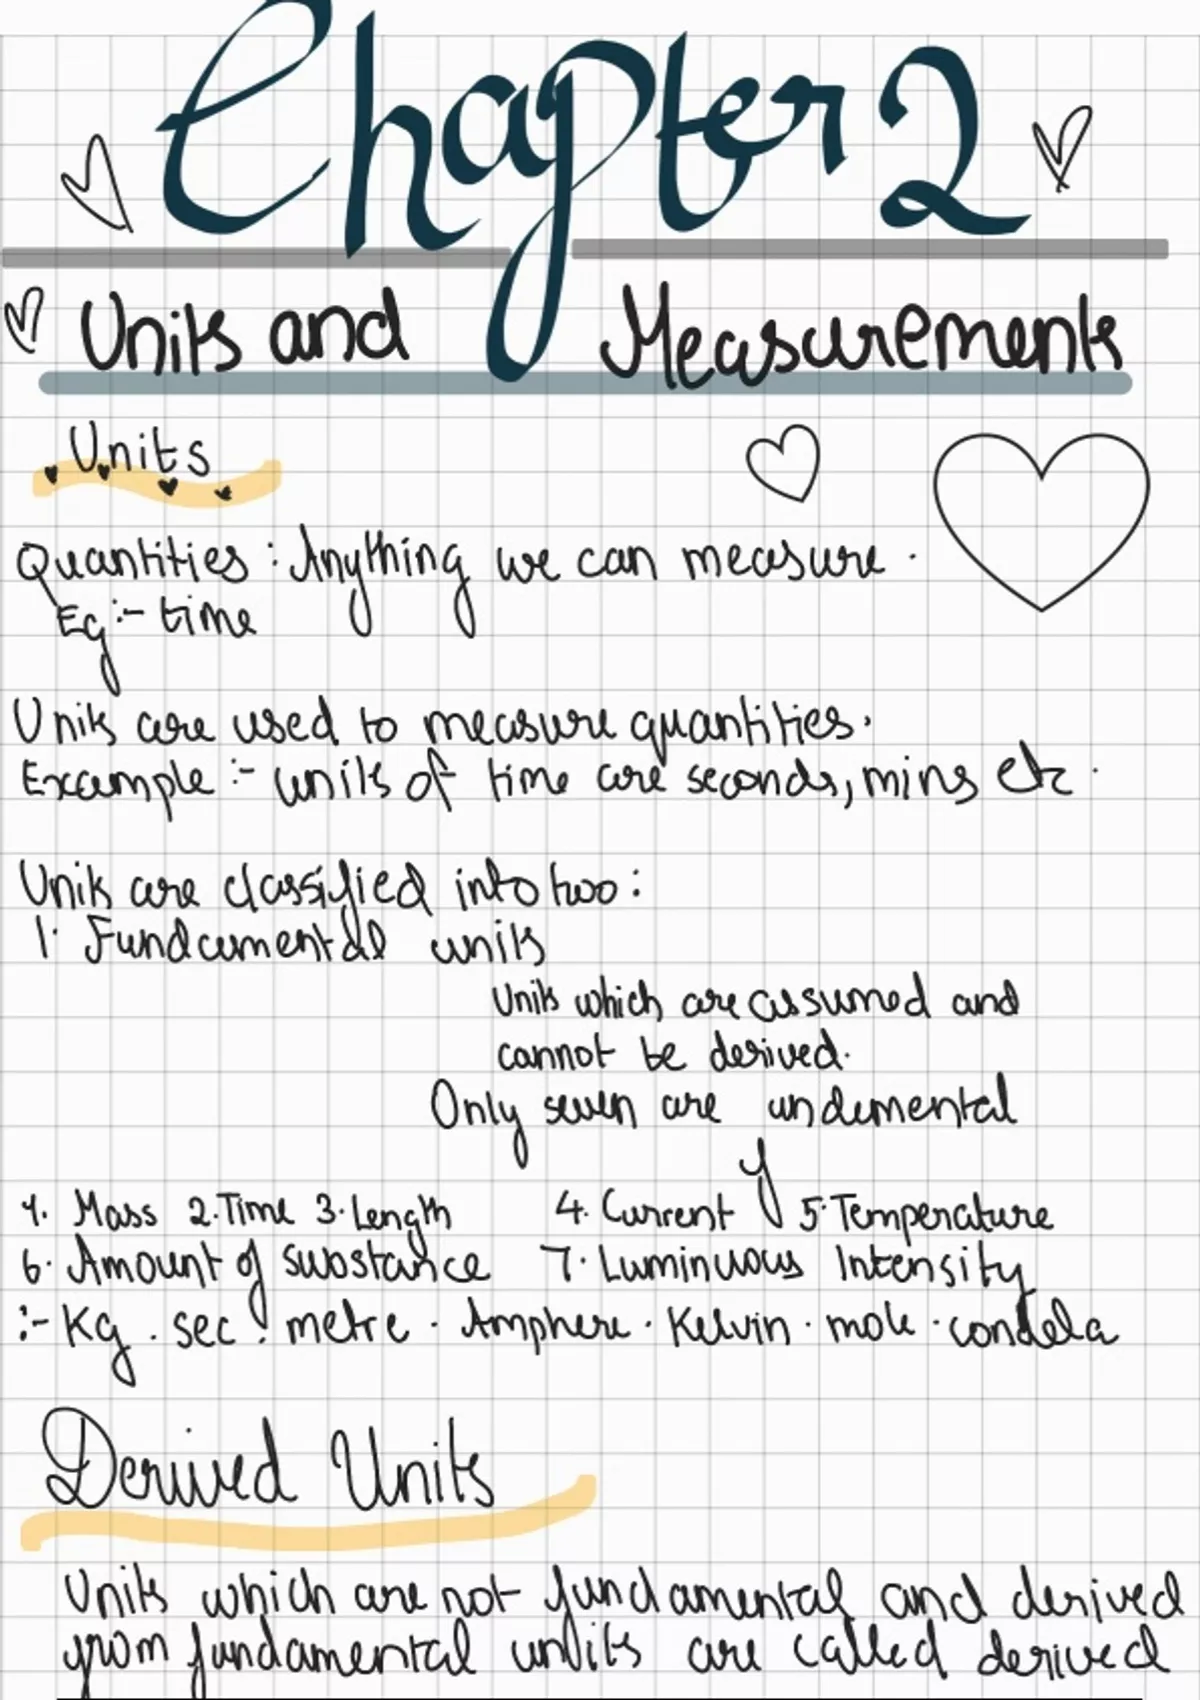 Chapter 2
Units and Measurements
Units
Quantities : Anything we can measure.
Eg :- time
Units are used to measure quantities.
Example :- units of time are seconds, mins etc.
Units are classified into two :
1. Fundamental units
Units which are assumed and
cannot be derived.
Only seven are fundemental
1. Mass 2. Time 3. Length 4. Current 5. Temperature
6. Amount of substance 7. Luminuous Intensity
:- Kg . sec . metre . Amphere . Kelvin . mole . condela
Derived Units
Units which are not fundamental and derived
from fundamental units are called derived